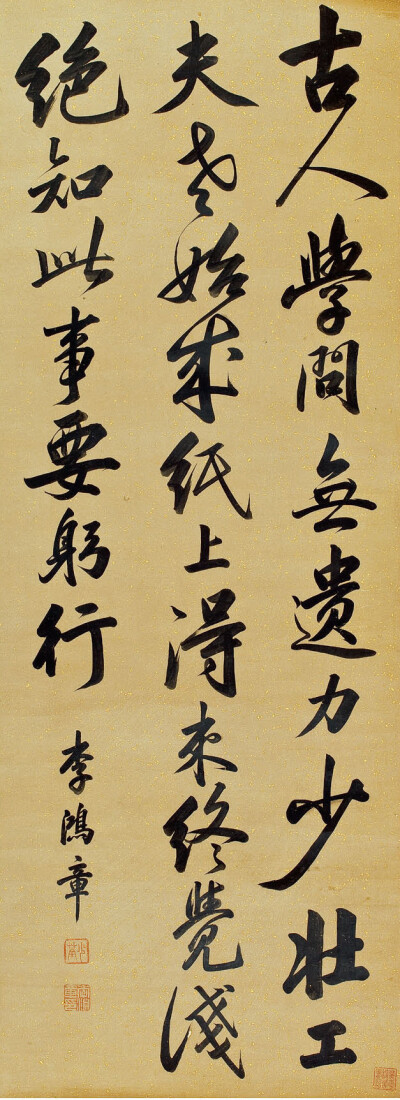 古人學問無遺力少壯工
夫老始成紙上得來終覺淺
絕知此事要躬行
李鴻章